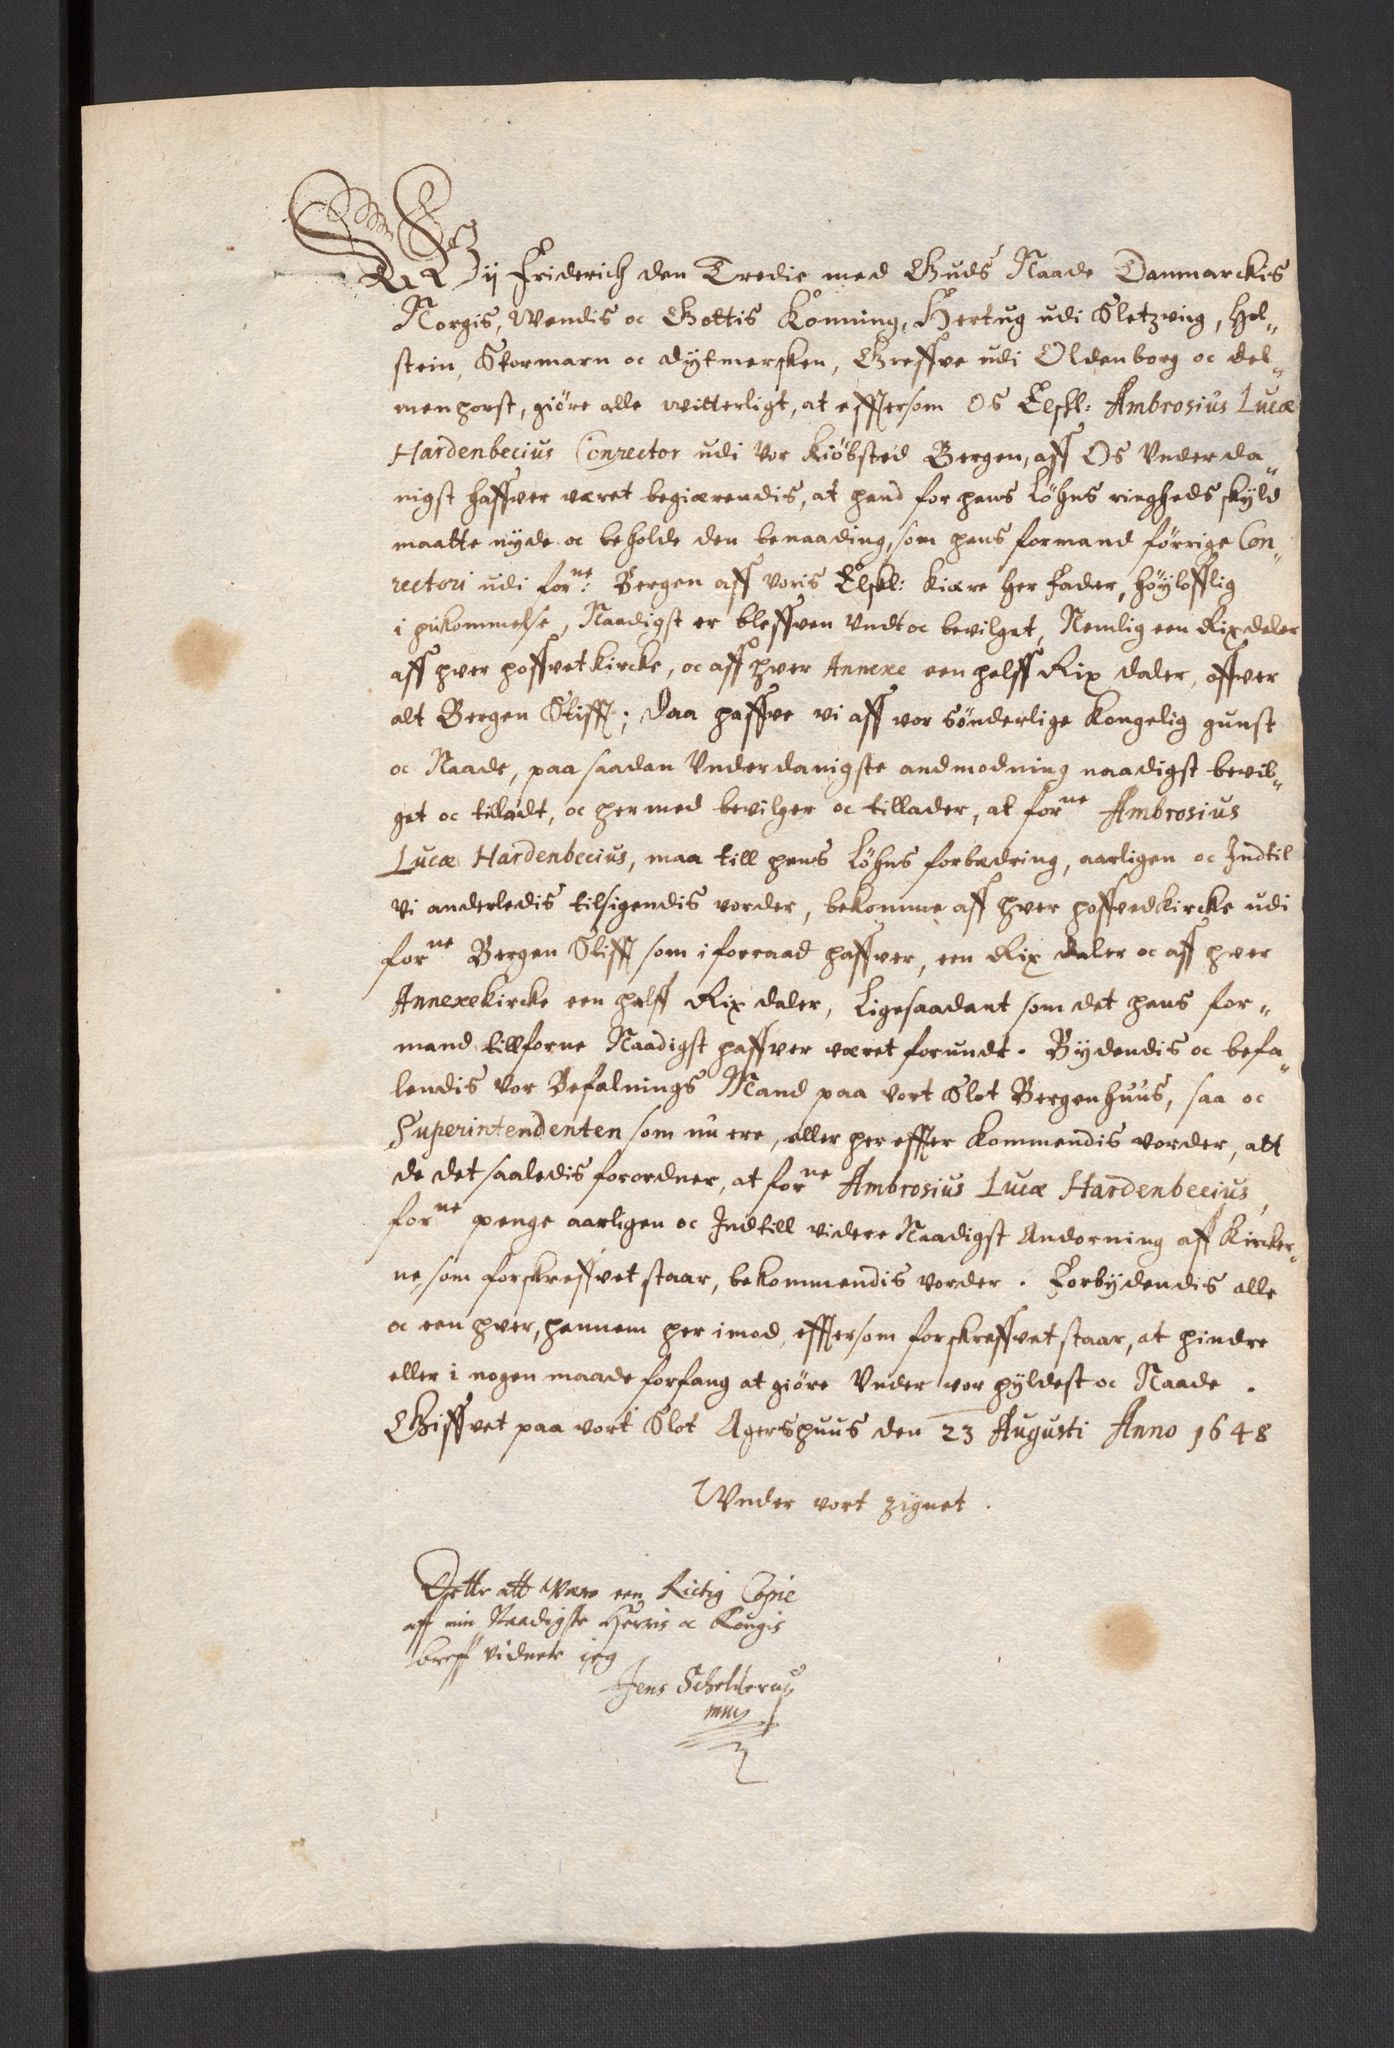 Wij Friderich den Tredie med Guds Naade Danmarckis
Norgis, Wendis oc Gottis Konning, Hertug udi Sletzvig, Hol-
stein, Stormarn oc Dytmersken, Greffve udi Oldenborg oc Del-
menhorst, giöre alle witterligt, at efftersom Os Elskl: Ambrosius Lucæ
Hardenbecius Conrector udi Vor Kiöbsted Bergen, aff Os Underda-
nigst haffver været begiærendis, at hand for hans Löhns ringheds skyld
maatte nyde oc beholde den benaading, som hans formand förrige Con-
rectori udi forne: Bergen aff Voris Elskl: Kiære Her Fader, Höylofflig
i hukommelse, Naadigst er bleffven Undt oc bevilget, Nemlig een Rixdaler
aff hver hoffvetkircke, oc aff hver Annexe een halff Rix daler, offver
alt Bergen Stifft; Daa haffve vi aff vor sönderlige Kongelig gunst
oc Naade, paa saadan Underdanigste andmodning naadigst bevil-
get oc tiladt, oc hermed bevilger oc tillader, at forne Ambrosius
Lucæ Hardenbecius, maa till hans Löhns forbædring, aarligen oc Indtil
vi anderledis tilsigendis vorder, bekomme aff hver hoffvedkircke udi
forne Bergen Stifft som i forraad haffver, een Rix daler oc aff hver
Annexekircke een halff Rix daler, Ligesaadant som det hans for-
mand tillforne Naadigst haffver været forundt. Bydendis oc befa-
lendis vor Befalnings Mand paa vort Slot Bergenhuus, saa oc
Superintendenten som nu ere, eller her effter kommendis vorder, att
de det saaledis forordner, at forne Ambrosius Lucæ Hardenbecius,
forne penge aarligen oc Indtill videre Naadigst Andorning aff Kircker-
ne, som forskreffvet staar, bekommendis vorder. Forbydendis alle
oc een hver, hannem her imod, efftersom forskreffvet staar, at hindre
eller i nogen maade forfang at giöre Under vor hyldest oc Naade.
Giffvet paa vort Slot Agershuus den 23 Augusti Anno 1648
Under vort zignet.
Dette att være een Rictig Copie
aff min Naadigste Herris oc Kongis
breff vidner jeg
Jens Schelderus
mmp